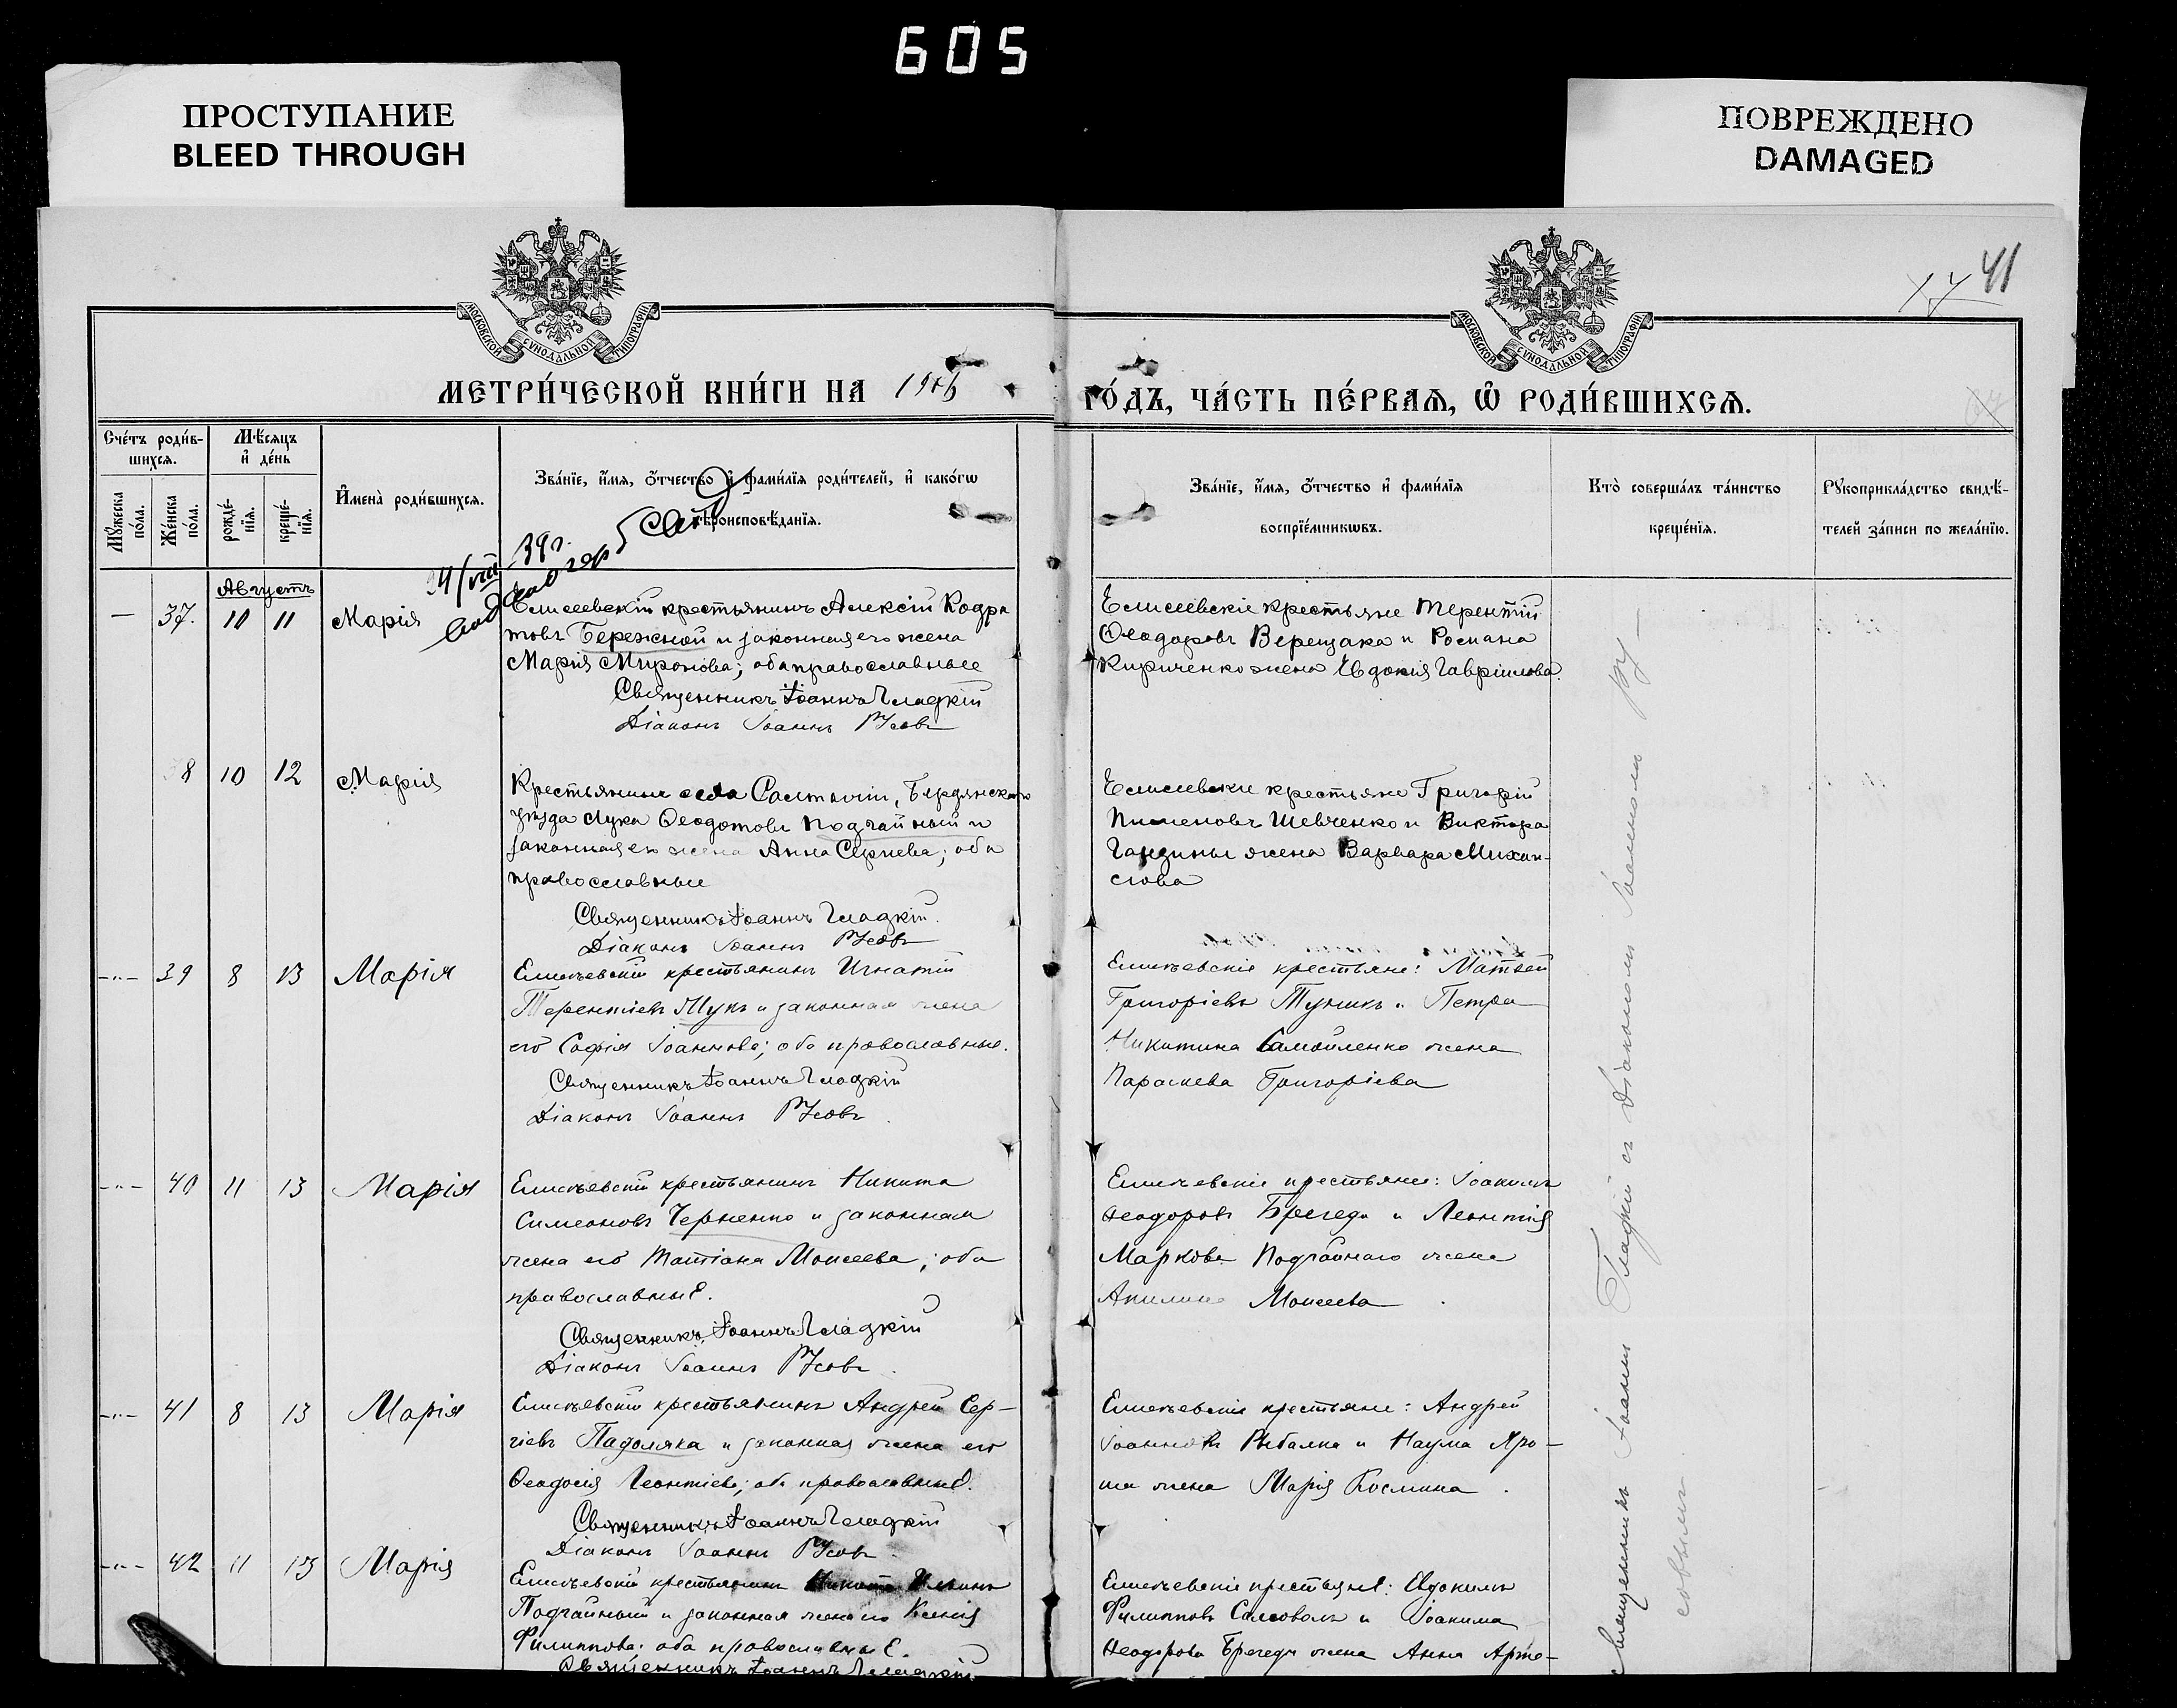 605
ПРОСТУПАНИЕ
BLEED THROUGH
ПОВРЕЖДЕНО
DAMAGED
41
МОСКОВСКОЙ СѴНОДАЛЬНОЙ ТИПОГРАФІИ
МОСКОВСКОЙ СѴНОДАЛЬНОЙ ТИПОГРАФІИ
МЕТРИ́ЧЕСКОЙ КНИ́ГИ НА 1906 ГО́ДЪ, ЧА́СТЬ ПЕ́РВАѦ, Ѡ҆ РОДИ́ВШИХСѦ.
Сче́тъ роди́в-
шихсѧ.
Мꙋ́жеска по́ла.
Же́нска по́ла.
Мѣ́сѧцъ
и҆ де́нь
рожде́-
нїѧ.
креще́-
нїѧ.
И҆мена̀ роди́вшихсѧ.
Зва́нїе, и҆́мѧ, ѻ҆́тчество и҆ фами́лїѧ роди́телей, и҆ како́гѡ
вѣроисповѣ́данїѧ.
Зва́нїе, и҆́мѧ, ѻ҆́тчество и҆ фами́лїѧ
воспрїе́мникѡвъ.
Кто̀ соверша́лъ та́инство
креще́нїѧ.
Рꙋкоприкла́дство свидѣ́-
телей за́писи по жела́нїю.
39 г.
Августъ
— 37. 10 11 Марія
Елисеевскій крестьянинъ Алексій Кодра
товъ Бережной и законная его жена
Марія Миронова; оба православные
Священникъ Іоаннъ Гладкій
Діаконъ Іоаннъ Усовъ
Елисеевскіе крестьяне Терентій
Ѳеодоровъ Верещака и Романа
Кириченко жена Евдокія Гавріилова.
8 10 12 Марія
Крестьянинъ села Салтичіи, Бердянскаго
уѣзда Лука Ѳеодотовъ Подгайный и
законная его жена Анна Сергиева; оба
православные
Священникъ Іоаннъ Гладкій.
Діаконъ Іоаннъ Усовъ
Елисеевскіе крестьяне Григорій
Пименовъ Шевченко и Виктора
жена Варвара Михаи-
лова
-"- 39 8 13 Марія
Елисѣевскій крестьянинъ Игнатій
Терентіевъ Шукъ и законная жена
его Софія Іоаннова; оба православные.
Священникъ Іоаннъ Гладкій
Діаконъ Іоаннъ Усовъ.
Елисѣевскіе крестьяне: Матѳей
Григоріевъ Тупикъ и Петра
Никитина Самойленко жена
Параскева Григоріева
-"- 40 11 13 Марія
Елисѣевскій крестьянинъ Никита
Симеоновъ Черненко и законная
жена его Татіана Моисеева; оба
православные.
Священникъ Іоаннъ Гладкій
Діаконъ Іоаннъ Усовъ.
Елисѣевскіе крестьяне: Іоакимъ
Ѳеодоровъ Брегеда и Леонтія
Маркова Подгайнаго жена
Акилина Моисеева.
-"- 41 8 13 Марія
Елисѣевскій крестьянинъ Андрей Сер-
гіевъ Падоляка и законная жена его
Ѳеодосія Леонтіева; оба православные.
Священникъ Іоаннъ Гладкій
Діаконъ Іоаннъ Усовъ.
Елисѣевскіе крестьяне: Андрей
Іоанновъ Рыбалка и Наума Яро-
ша жена Марія Космина.
-"- 42 11 13 Марія
Елисѣевскій крестьянинъ Никита Ильинъ
Подгайный и законная жена его Ксенія
Филиппова; оба православные.
Священникъ Іоаннъ Гладкій
Елисѣевскіе крестьяне: Евдокимъ
Филипповъ Солововъ и Іоакима
Ѳеодорова Брегеды жена Анна Арте-
Священникъ Іоаннъ Гладкій съ діакономъ Іоанномъ Усовымъ.